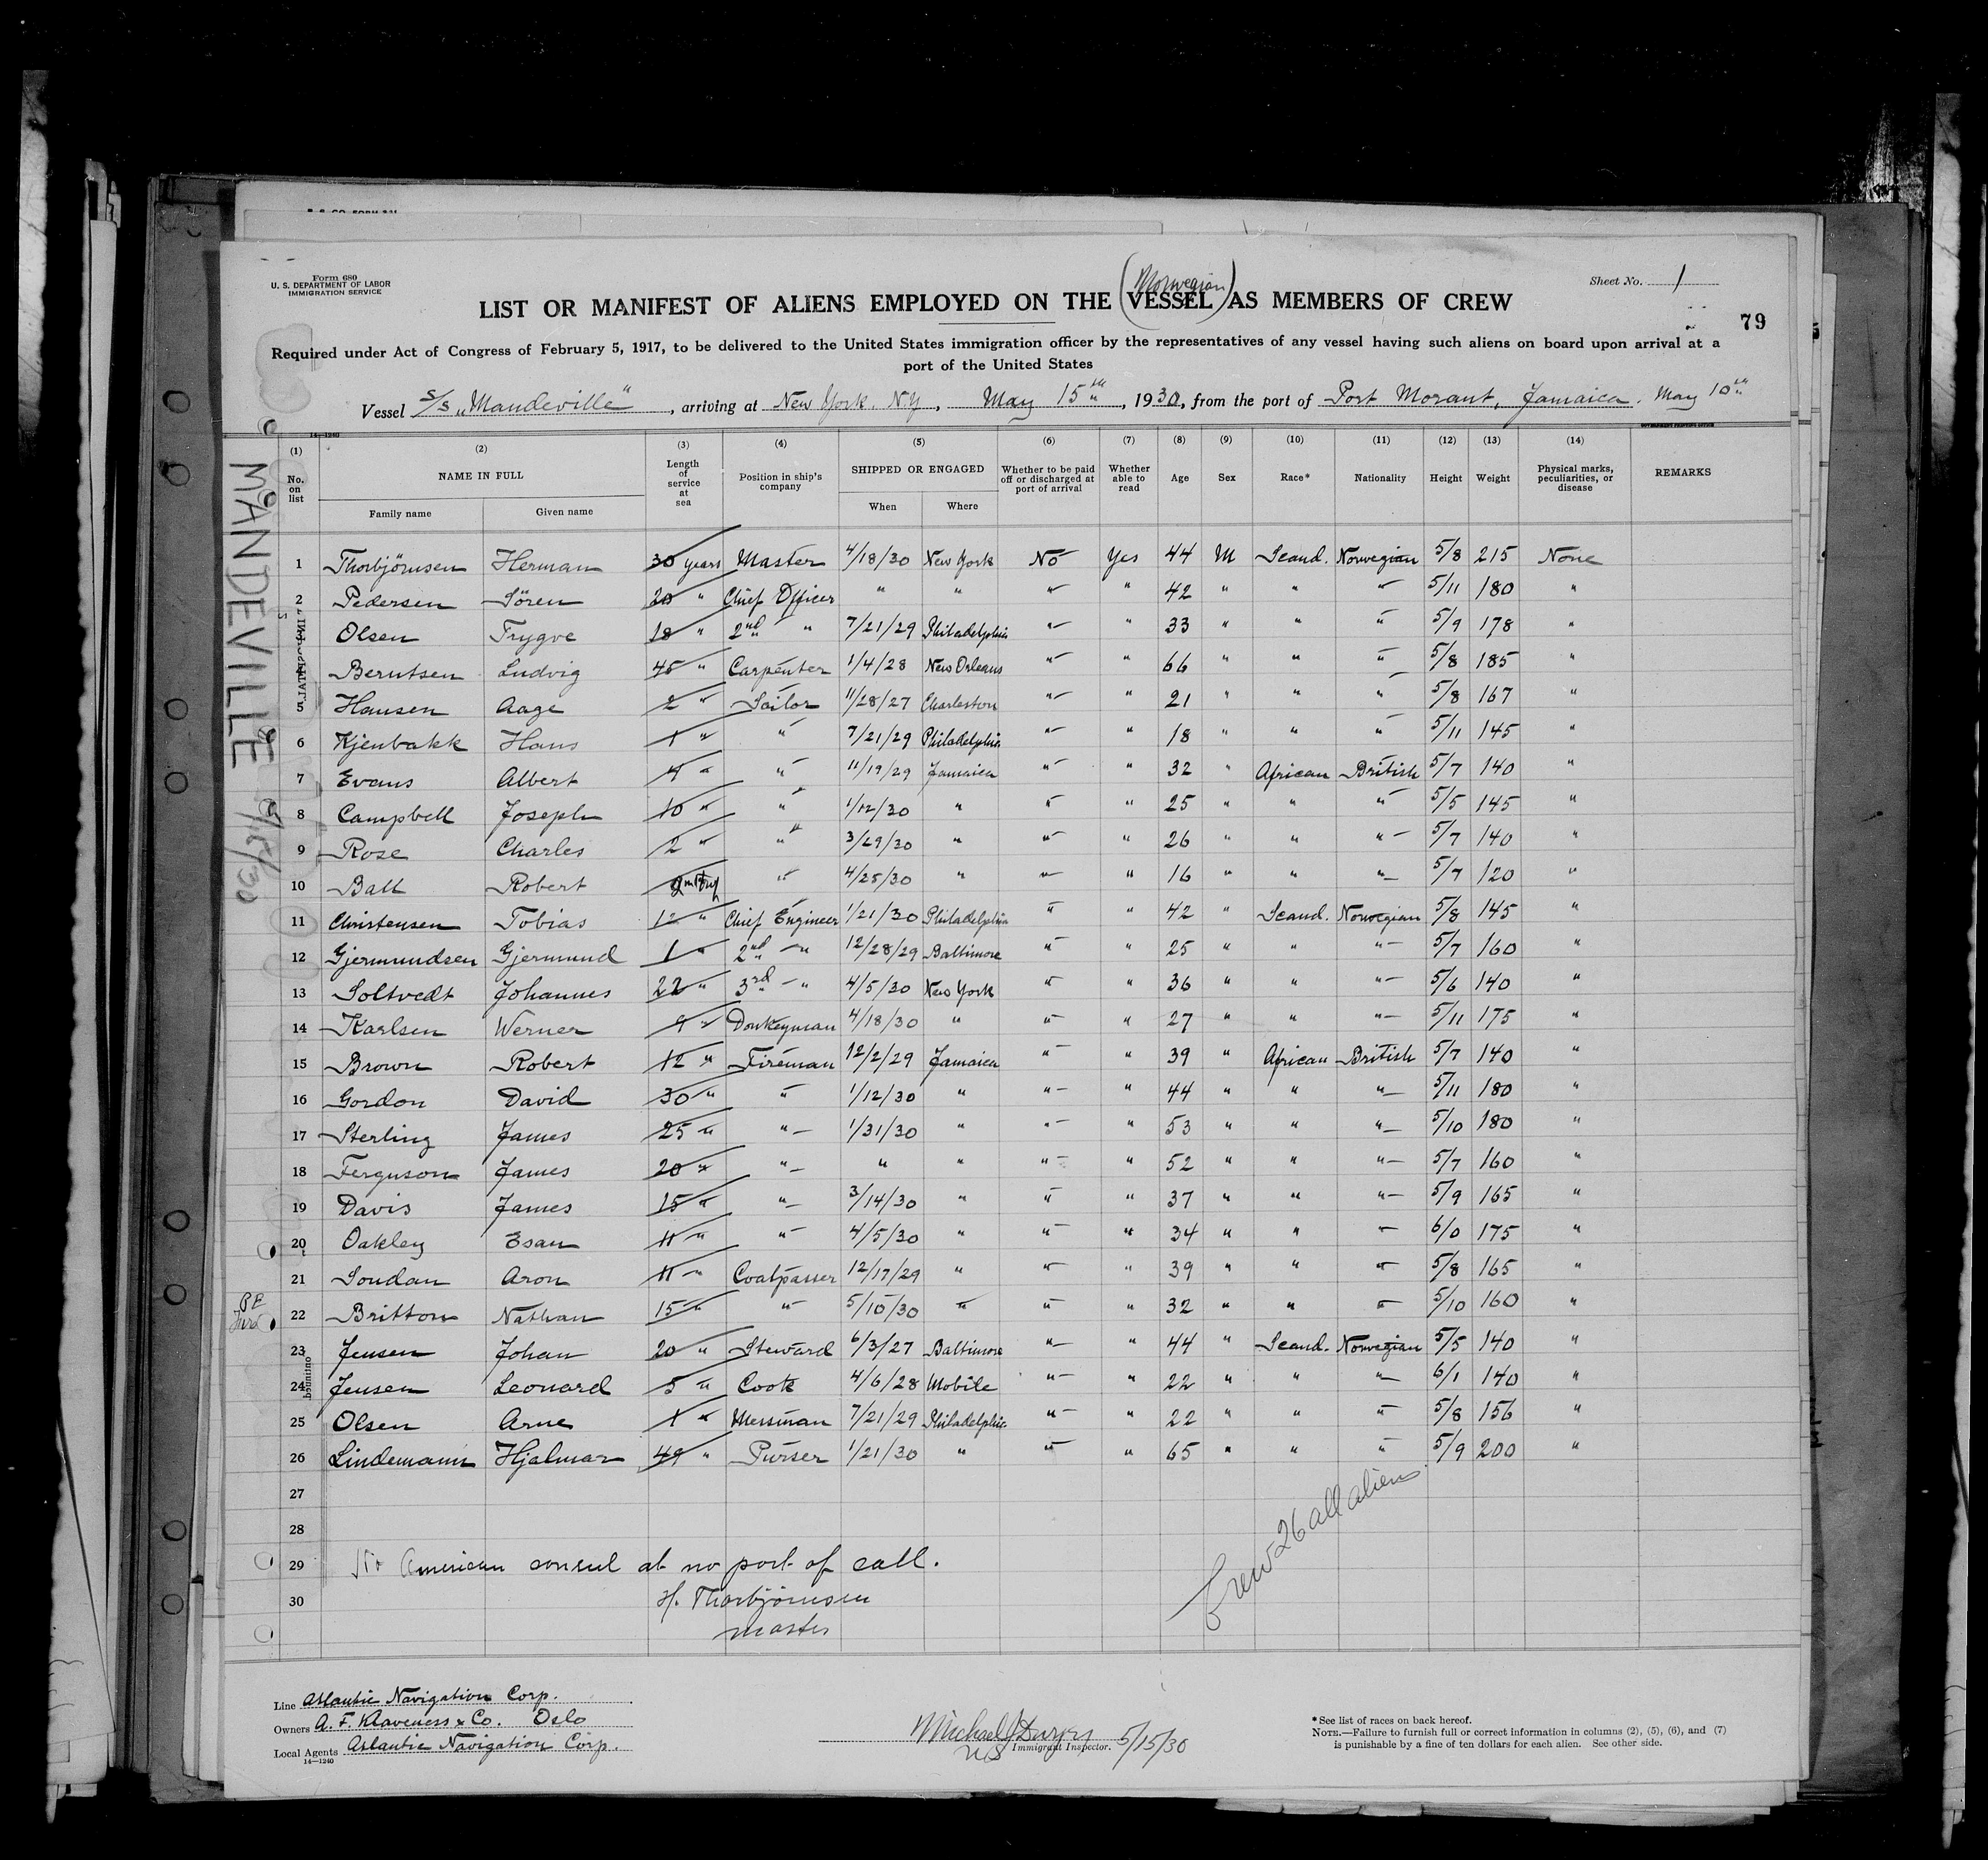 Form 680
U. S. DEPARTMENT OF LABOR
IMMIGRATION SERVICE
Sheet No. 1
(Norwegian)
LIST OR MANIFEST OF ALIENS EMPLOYED ON THE VESSEL AS MEMBERS OF CREW
79
Required under Act of Congress of February 5, 1917, to be delivered to the United States immigration officer by the representatives of any vessel having such aliens on board upon arrival at a
port of the United States
Vessel S/S „Mandeville", arriving at New York. N.Y., May 15th, 1930, from the port of Port Morant, Jamaica. May 10th
14—1240
MANDEVILLE 5/15/30
(1) (2) (3) (4) (5) (6) (7) (8) (9) (10) (11) (12) (13) (14)
No. on list NAME IN FULL Length of service at sea Position in ship's company SHIPPED OR ENGAGED Whether to be paid off or discharged at port of arrival Whether able to read Age Sex Race* Nationality Height Weight Physical marks, peculiarities, or disease REMARKS
Family name Given name When Where
1 Thorbjörnsen Herman 30 years Master 4/18/30 New York No Yes 44 M Scand. Norwegian 5/8 215 None
2 Pedersen Sören 20 " Chief Officer " " " " 42 " " " 5/11 180 "
3 Olsen Trygve 18 " 2nd " 7/21/29 Philadelphia " " 33 " " " 5/9 178 "
4 Berntsen Ludvig 45 " Carpenter 1/4/28 New Orleans " " 66 " " " 5/8 185 "
5 Hansen Aage 2 " Sailor 11/28/27 Charleston " " 21 " " " 5/8 167 "
6 Kjenbakk Hans 1 " " 7/21/29 Philadelphia " " 18 " " " 5/11 145 "
7 Evans Albert 4 " " 11/19/29 Jamaica " " 32 " African British 5/7 140 "
8 Campbell Joseph 10 " " 1/12/30 " " " 25 " " " 5/5 145 "
9 Rose Charles 2 " " 3/29/30 " " " 26 " " " 5/7 140 "
10 Ball Robert " 4/25/30 " " " 16 " " " 5/7 120 "
11 Christensen Tobias 12 " Chief Engineer 1/21/30 Philadelphia " " 42 " Scand. Norwegian 5/8 145 "
12 Gjermundsen Gjermund 1 " 2nd " 12/28/29 Baltimore " " 25 " " " 5/7 160 "
13 Soltvedt Johannes 22 " 3rd " 4/5/30 New York " " 36 " " " 5/6 140 "
14 Karlsen Werner 9 " Donkeyman 4/18/30 " " " 27 " " " 5/11 175 "
15 Brown Robert 12 " Fireman 12/2/29 Jamaica " " 39 " African British 5/7 140 "
16 Gordon David 30 " " 1/12/30 " " " 44 " " " 5/11 180 "
17 Sterling James 25 " " 1/31/30 " " " 53 " " " 5/10 180 "
18 Ferguson James 20 " " " " " " 52 " " " 5/7 160 "
19 Davis James 15 " " 3/14/30 " " " 37 " " " 5/9 165 "
20 Oakley Esau 11 " " 4/5/30 " " " 34 " " " 6/0 175 "
21 Soudan Aron 11 " Coalpasser 12/17/29 " " " 39 " " " 5/8 165 "
22 Britton Nathan 15 " " 5/10/30 " " " 32 " " " 5/10 160 "
23 Jensen Johan 20 " Steward 6/3/27 Baltimore " " 44 " Scand. Norwegian 5/5 140 "
24 Jensen Leonard 5 " Cook 4/6/28 Mobile " " 22 " " " 6/1 140 "
25 Olsen Arne 1 " Messman 7/21/29 Philadelphia " " 22 " " " 5/8 156 "
26 Lindemann Hjalmar 49 " Purser 1/21/30 " " " 65 " " " 5/9 200 "
27
28
Crew 26 all aliens
29 No American consul at no port of call.
30 H. Thorbjörnsen
master
Line Atlantic Navigation Corp.
Owners A. F. Klaveness & Co. Oslo
Local Agents Atlantic Navigation Corp.
14—1240
Michael J
US Immigrant Inspector. 5/15/30
*See list of races on back hereof.
NOTE.—Failure to furnish full or correct information in columns (2), (5), (6), and (7)
is punishable by a fine of ten dollars for each alien. See other side.